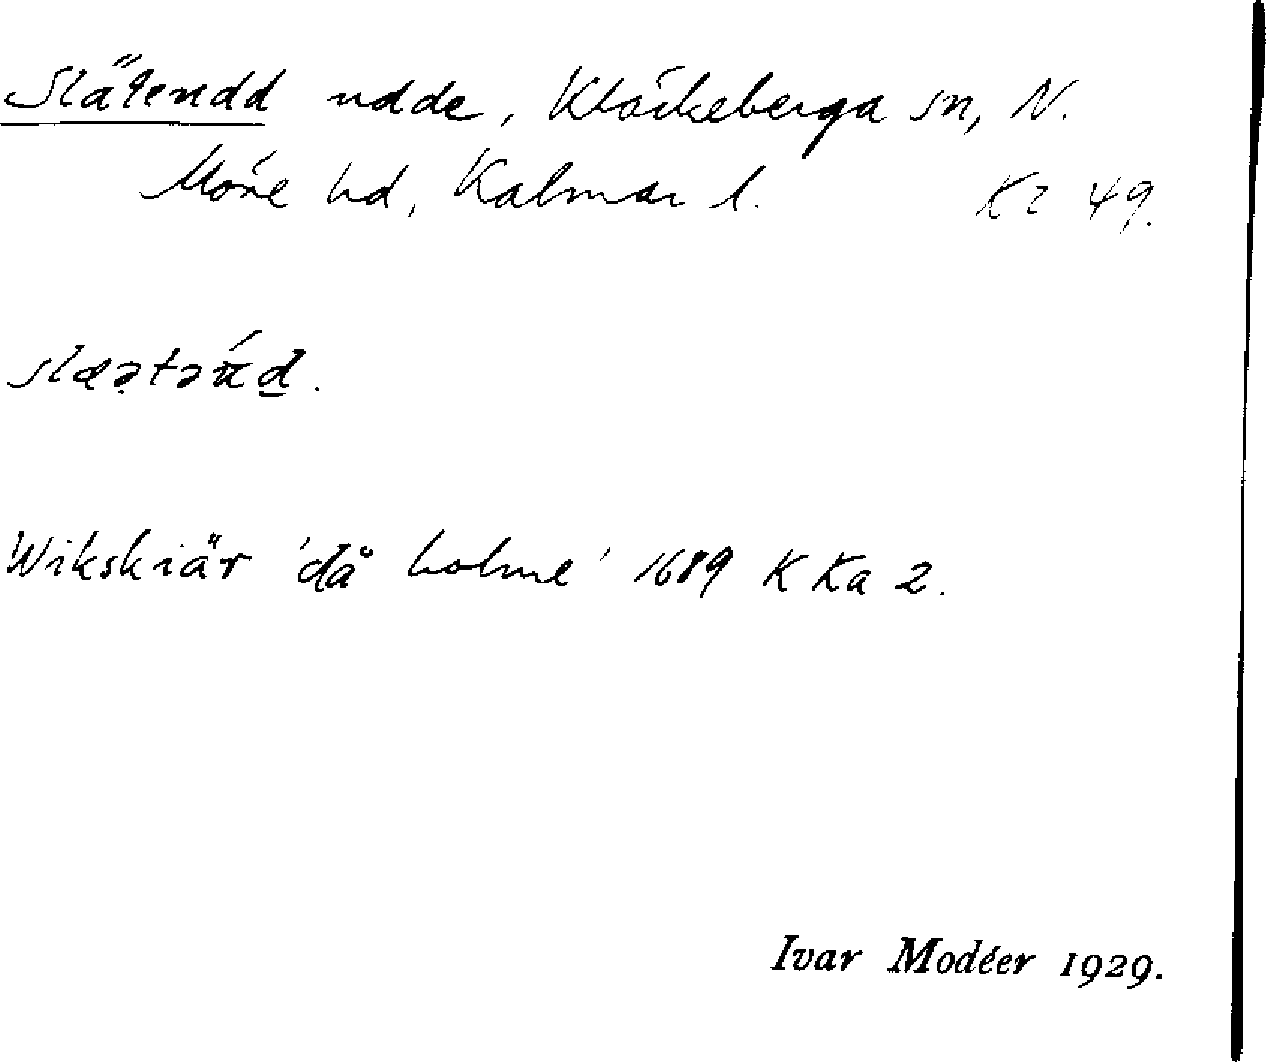 Slätendd udde, Kläckeberga sn, N.
Möre hd, Kalmar l. Kr 49.
slæə̣tən̄́d̲.
Wikskiär 'då holme' 1689 K Ka 2.
Ivar Modéer 1929.